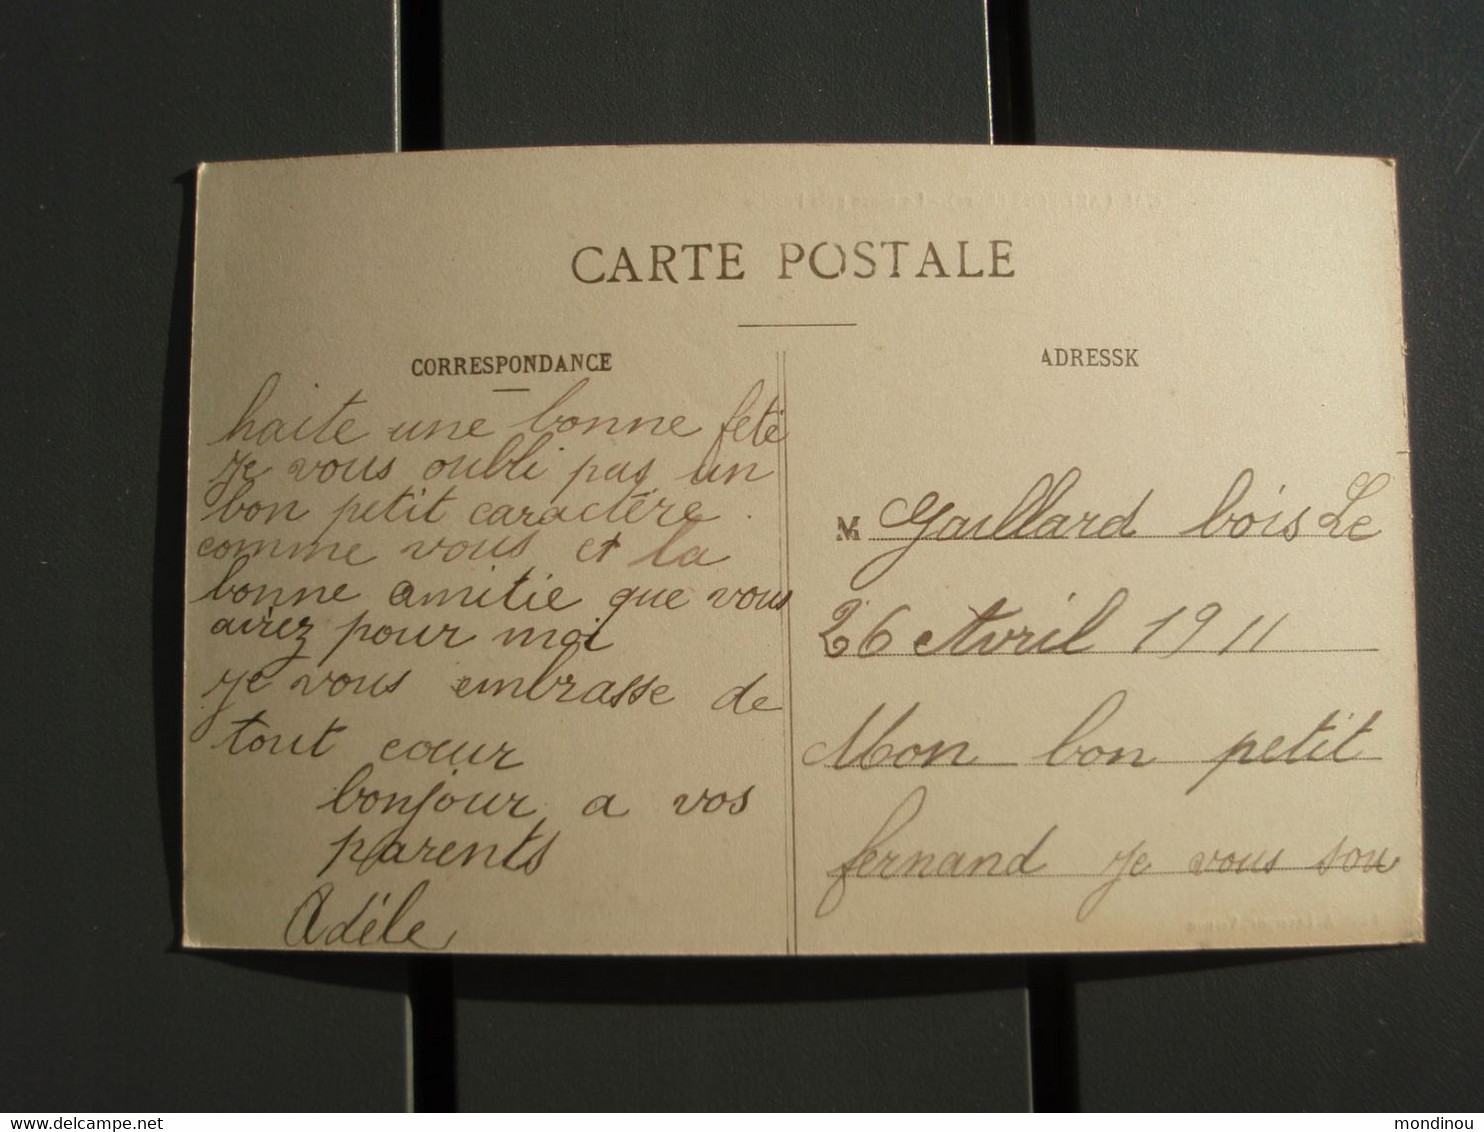 CARTE POSTALE
CORRESPONDANCE
ADRESSE
M Gaillard bois Le
26 Avril 1911
Mon bon petit
fernand je vous sou
haite une bonne feté
je vous oubli pas un
bon petit caractére
comme vous et la
bonne amitie que vous
airez pour moi
je vous embrasse de
tout cœur
bonjour a vos
parents
Adéle
www.delcampe.net
mondinou